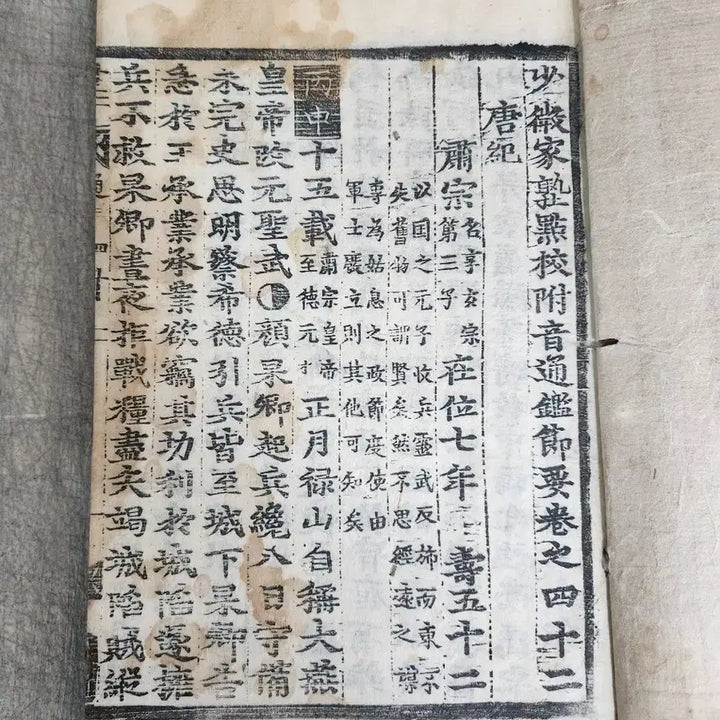 少微家塾點校附音通鑑節要卷之四十二
唐紀
肅宗名亨玄宗第三子在位七年壽五十二
以国之元子收兵靈武反旆而東宗
失舊物可謂賢矣然不思經遠之謨
專為姑息之政節度使由
軍士廢立則其他可知矣
丙申十五載肅宗皇帝至德元才正月禄山自稱大燕
皇帝改元聖武顔杲卿起兵纔八日守備
未完史思明蔡希德引兵皆至城下杲卿告
急於王承業承業欲竊其功利於城陷遂擁
兵不救杲卿晝夜拒戰糧盡矢竭城陷賊縱